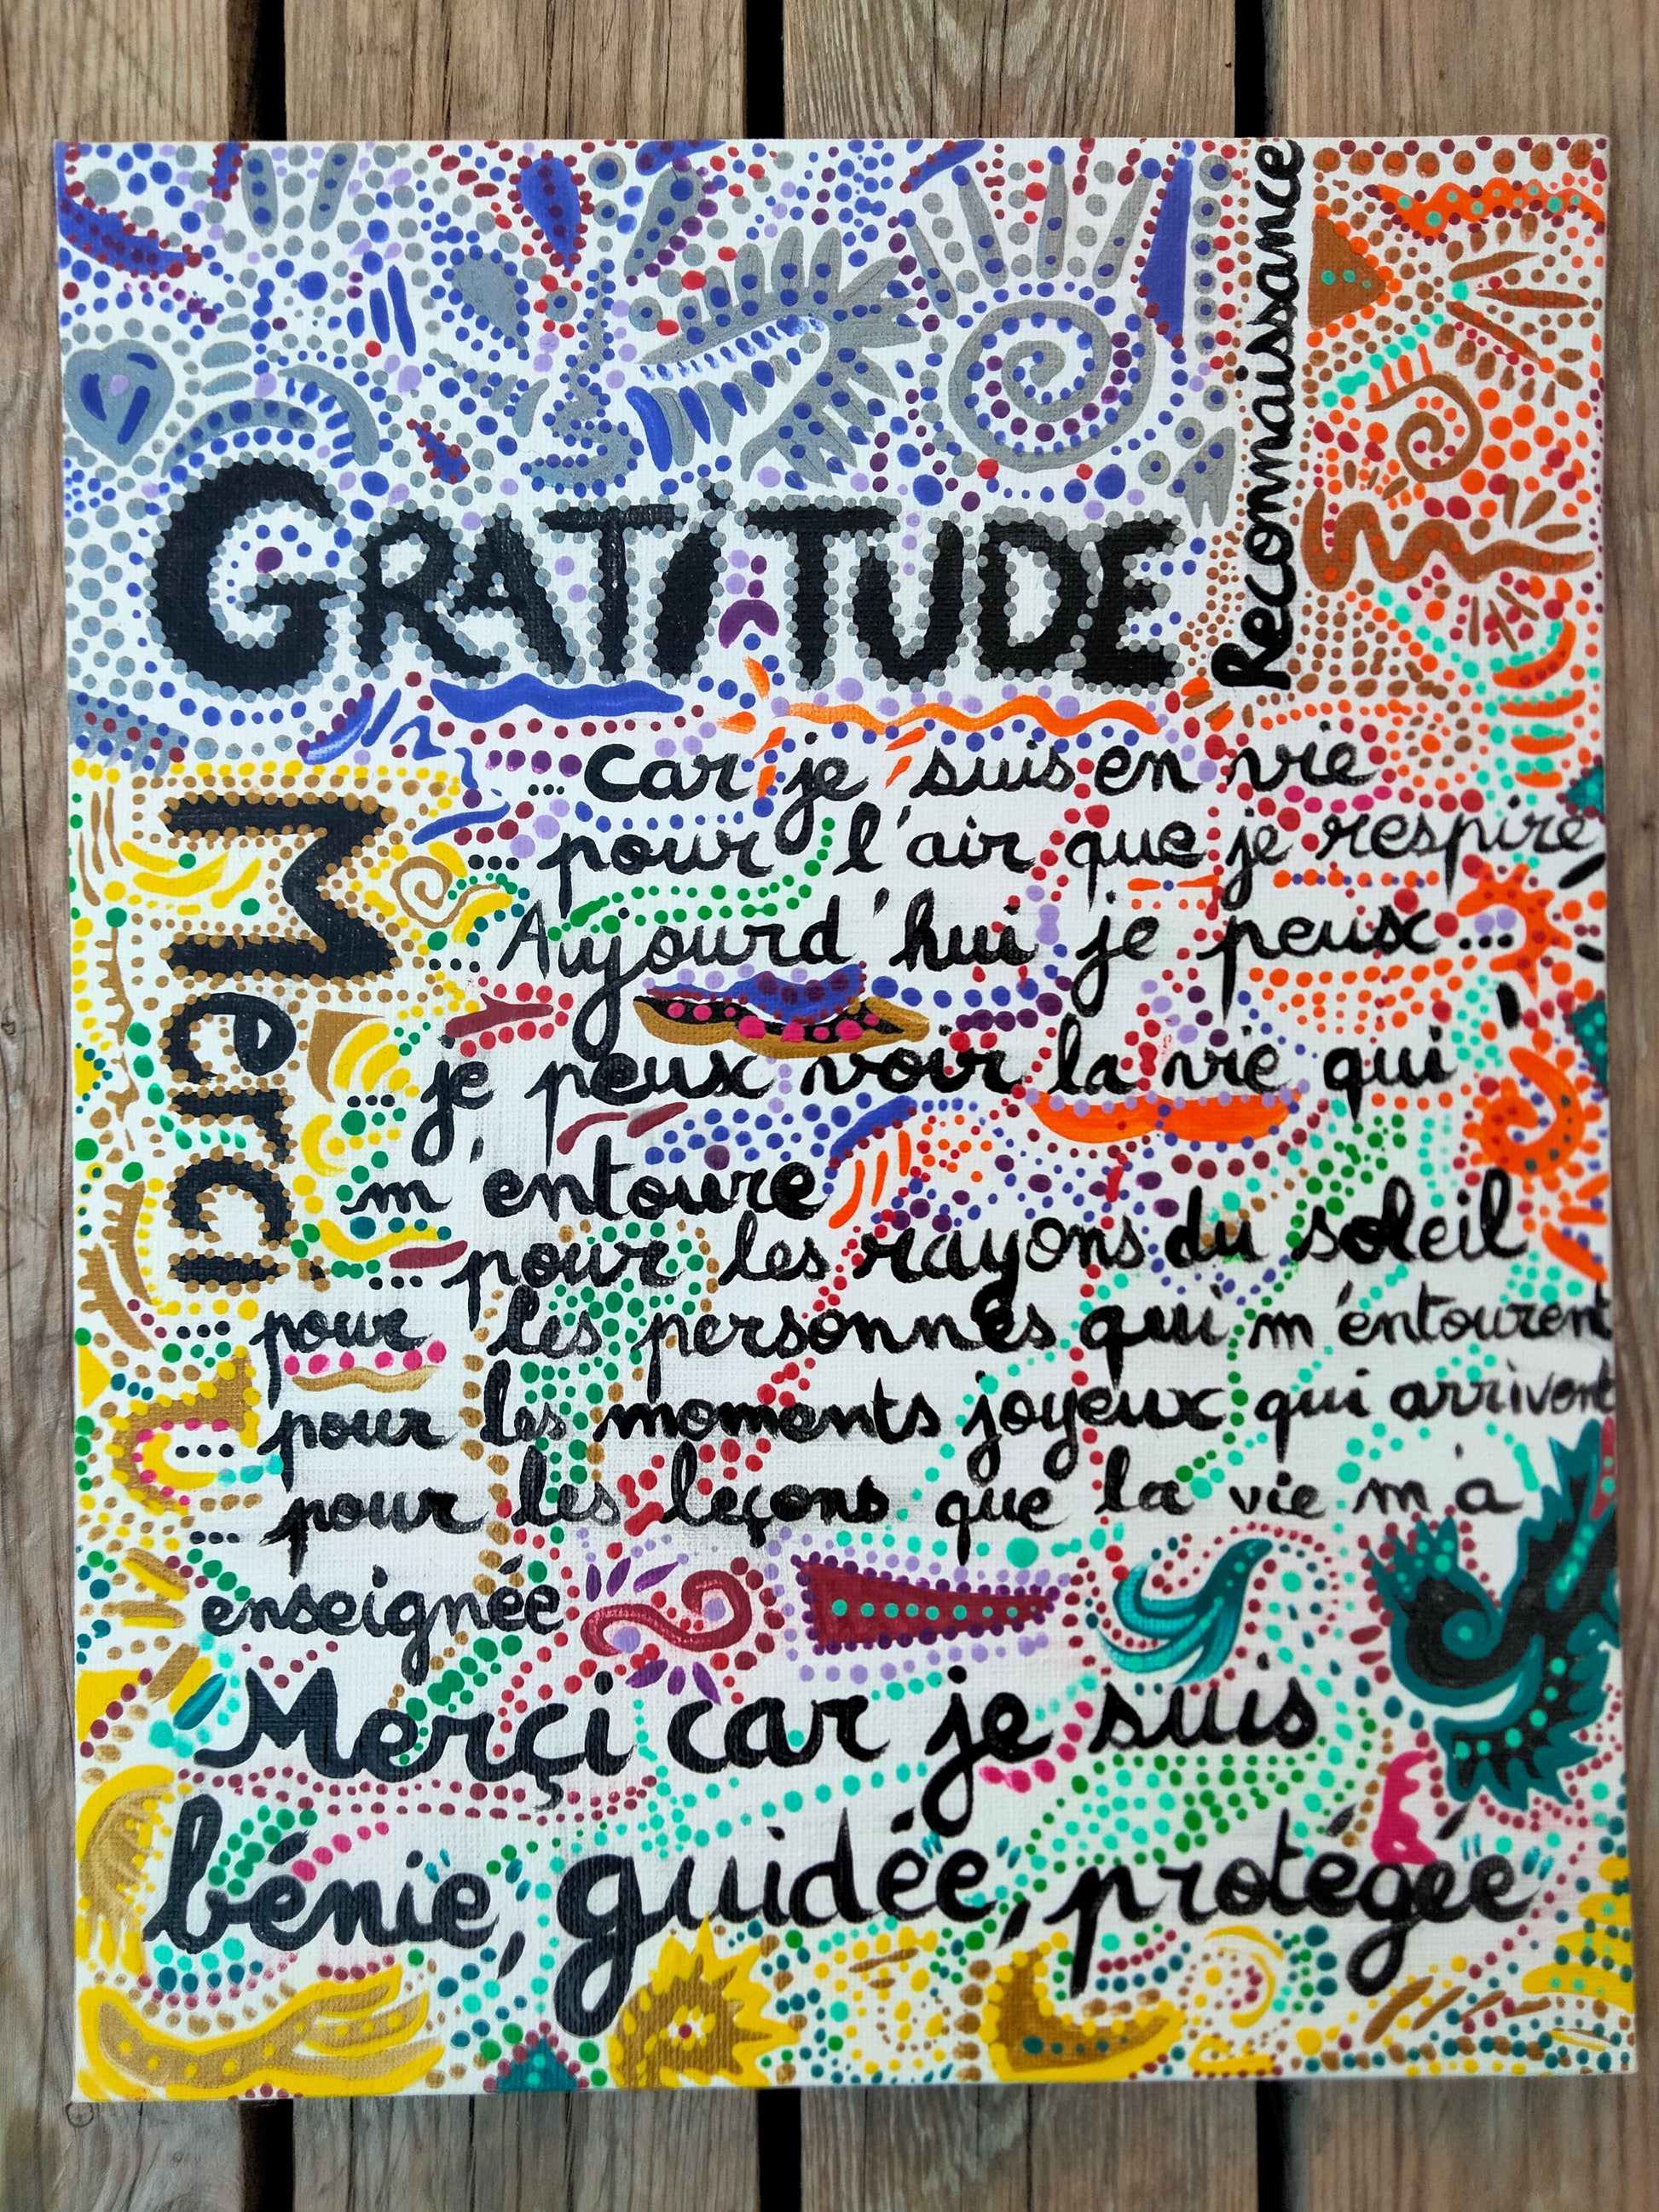 GRATiTUDE
Reconnaissance
Merci
... car je suis en vie
... pour l'air que je respire
... Aujourd'hui je peux ...
... je peux voir la vie qui
m'entoure
... pour les rayons du soleil
... pour les personnes qui m'entourent
... pour les moments joyeux qui arrivent
... pour les leçons que la vie m'a
enseignée
Merçi car je suis
bénie, guidée, protégée